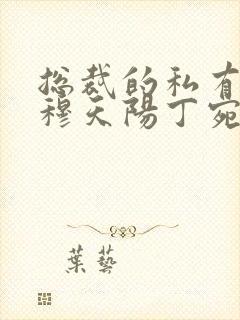 总裁的私有
穆天陽丁宛
葉藝